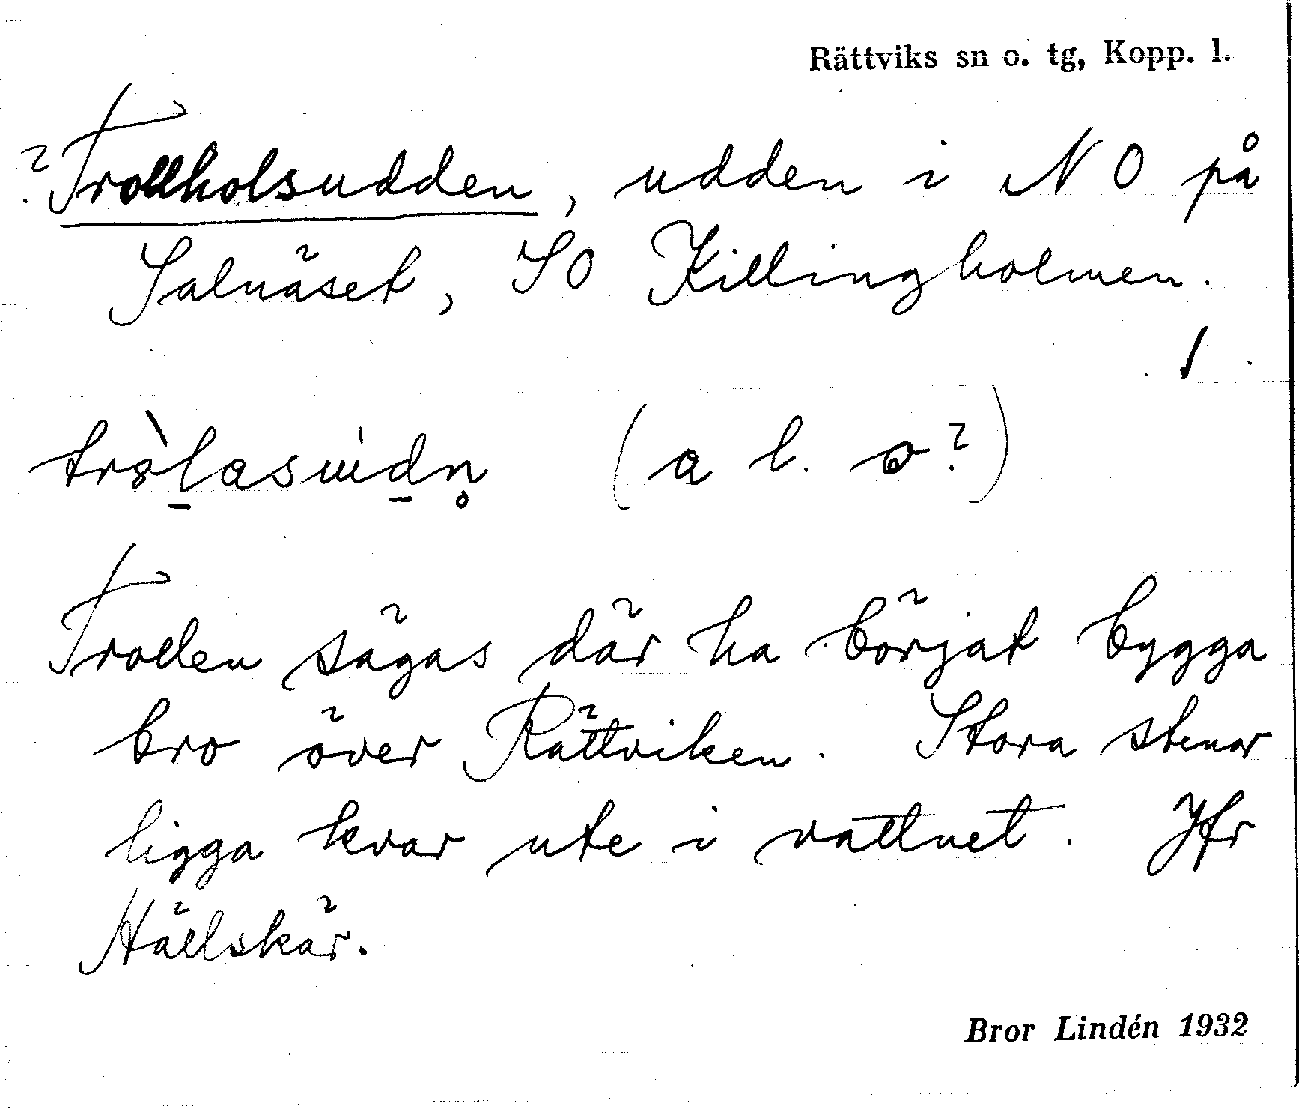 Rättviks sn o. tg, Kopp. l.
? Trollholsudden, udden i NO på
Salnäset, SO Killingholmen.
(a l. o?)
Trollen sägas där ha börjat bygga
bro över Rättviken. Stora stenar
ligga kvar ute i vattnet. Jfr
Hällskär.
Bror Lindén 1932